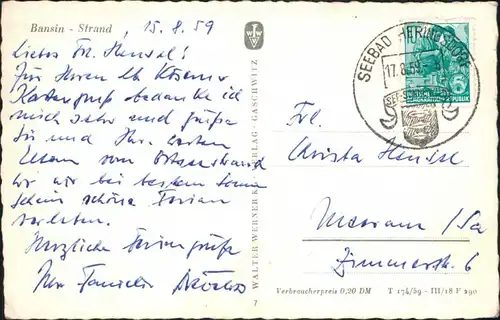 Bansin - Strand
15. 8. 59
Liebes Frl. Hensel!
Für Ihren lb
Kartengruß bedanke ich
mich sehr und grüße
Sie und Ihre werten
Eltern vom Ostseestrand
wo wir bei bestem Sonnen
schein schöne Ferien
verleben.
Herzliche Feriengrüße
Ihre Familie
WALTER WERNER VERLAG · GASCHWITZ
7
SEEBAD HERINGSDORF
17.8.59
DEUTSCHE
DEMOKRATISCHE REPUBLIK
6
Frl.
Christa Hensel
Meerane / Sa
Zimmerstr. 6
Verbraucherpreis 0,20 DM T 174/59 - III/18 F 290